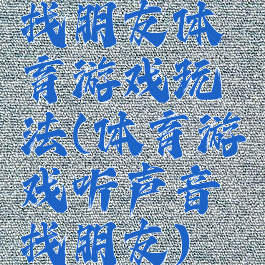 找朋友体
育游戏玩
法(体育游
戏听声音
找朋友)